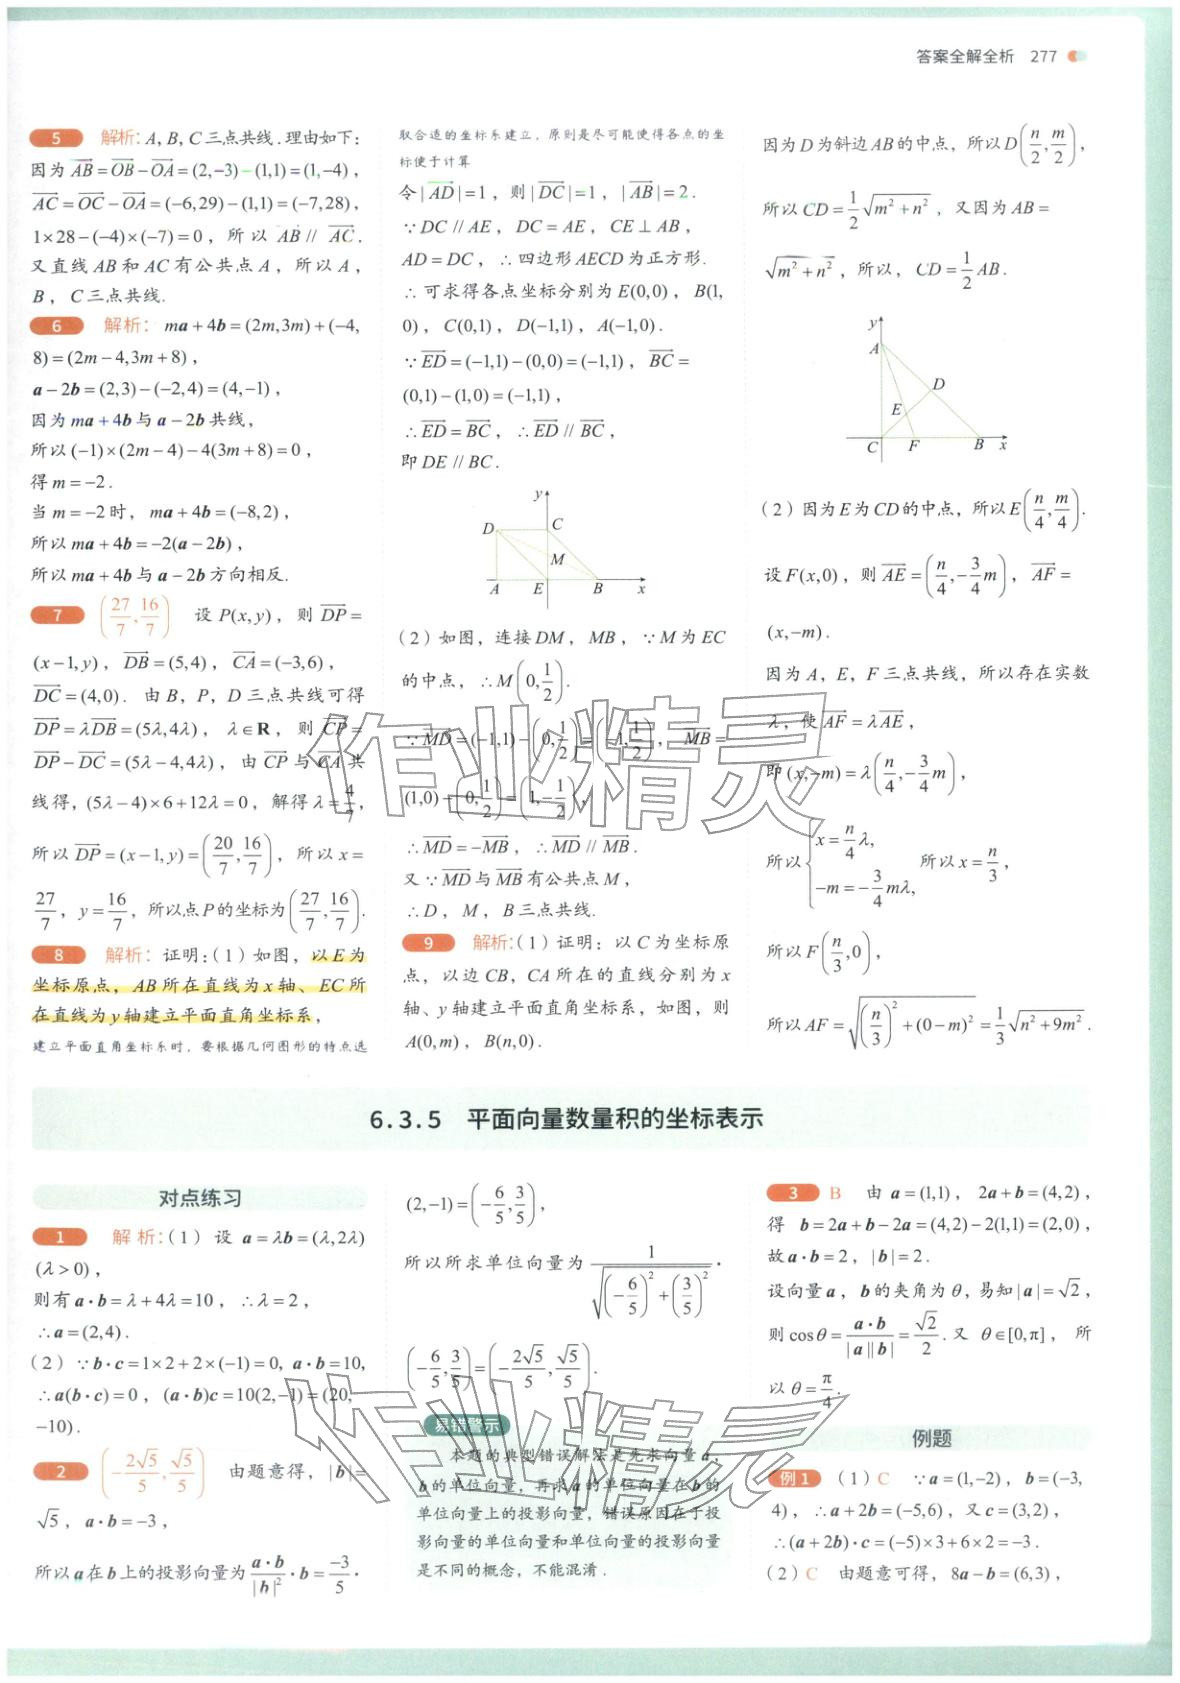 答案全解全析 277
5 解析:A,B,C三点共线.理由如下:
因为AB=OB-OA=(2,-3)-(1,1)=(1,-4),
AC=OC-OA=(-6,29)-(1,1)=(-7,28),
1×28-(-4)×(-7)=0,所以 AB// AC.
又直线AB和AC有公共点A,所以A,
B,C三点共线.
6 解析:ma+4b=(2m,3m)+(-4,
8)=(2m-4,3m+8),
a-2b=(2,3)-(-2,4)=(4,-1),
因为ma+4b与a-2b共线,
所以(-1)×(2m-4)-4(3m+8)=0,
得m=-2.
当m=-2时,ma+4b=(-8,2),
所以ma+4b=-2(a-2b),
所以ma+4b与a-2b方向相反.
7 (27/7,16/7) 设P(x,y),则DP=
(x-1,y),DB=(5,4),CA=(-3,6),
DC=(4,0).由B,P,D三点共线可得
DP=λDB=(5λ,4λ),λ∈R,则CP=
DP-DC=(5λ-4,4λ),由CP与CA共
线得,(5λ-4)×6+12λ=0,解得λ=4/7,
所以DP=(x-1,y)=(20/7,16/7),所以x=
27/7,y=16/7,所以点P的坐标为(27/7,16/7).
8 解析:证明:(1)如图,以E为
坐标原点,AB所在直线为x轴、EC所
在直线为y轴建立平面直角坐标系,
建立平面直角坐标系时,要根据几何图形的特点选
取合适的坐标系建立,原则是尽可能使得各点的坐
标便于计算
令|AD|=1,则|DC|=1,|AB|=2.
∵DC//AE,DC=AE,CE⊥AB,
AD=DC,∴四边形AECD为正方形.
∴可求得各点坐标分别为E(0,0),B(1,
0),C(0,1),D(-1,1),A(-1,0).
∵ED=(-1,1)-(0,0)=(-1,1),BC=
(0,1)-(1,0)=(-1,1),
∴ED=BC,∴ED//BC,
即DE//BC.
y
D
C
M
A
E
B
x
(2)如图,连接DM,MB,∵M为EC
的中点,∴M(0,1/2).
∵MD=(-1,1)-(0,1/2)=(-1,1/2),MB=
(1,0)-(0,1/2)=(1,-1/2),
∴MD=-MB,∴MD//MB.
又∵MD与MB有公共点M,
∴D,M,B三点共线.
9 解析:(1)证明:以C为坐标原
点,以边CB,CA所在的直线分别为x
轴、y轴建立平面直角坐标系,如图,则
A(0,m),B(n,0).
因为D为斜边AB的中点,所以D(n/2,m/2),
所以CD=1/2√(m²+n²),又因为AB=
√(m²+n²),所以,CD=1/2AB.
y
A
D
E
C
F
B
x
(2)因为E为CD的中点,所以E(n/4,m/4).
设F(x,0),则AE=(n/4,-3/4m),AF=
(x,-m).
因为A,E,F三点共线,所以存在实数
λ,使AF=λAE,
即(x,-m)=λ(n/4,-3/4m),
所以{x=n/4λ, -m=-3/4mλ, 所以x=n/3,
所以F(n/3,0),
所以AF=√((n/3)²+(0-m)²)=1/3√(n²+9m²).
6.3.5 平面向量数量积的坐标表示
对点练习
1 解析:(1)设a=λb=(λ,2λ)
(λ>0),
则有a·b=λ+4λ=10,∴λ=2,
∴a=(2,4).
(2)∵b·c=1×2+2×(-1)=0,a·b=10,
∴a(b·c)=0,(a·b)c=10(2,-1)=(20,
-10).
2 (-2√5/5,√5/5) 由题意得,|b|=
√5,a·b=-3,
所以a在b上的投影向量为a·b/|b|²·b=-3/5·
(2,-1)=(-6/5,3/5),
所以所求单位向量为1/√((-6/5)²+(3/5)²)·
(-6/5,3/5)=(-2√5/5,√5/5).
易错警示
本题的典型错误解法是先求向量a,
b的单位向量,再求a的单位向量在b的
单位向量上的投影向量,错误原因在于投
影向量的单位向量和单位向量的投影向量
是不同的概念,不能混淆.
3 B 由a=(1,1),2a+b=(4,2),
得b=2a+b-2a=(4,2)-2(1,1)=(2,0),
故a·b=2,|b|=2.
设向量a,b的夹角为θ,易知|a|=√2,
则cosθ=a·b/|a||b|=√2/2.又θ∈[0,π],所
以θ=π/4.
例题
例1 (1)C ∵a=(1,-2),b=(-3,
4),∴a+2b=(-5,6),又c=(3,2),
∴(a+2b)·c=(-5)×3+6×2=-3.
(2)C 由题意可得,8a-b=(6,3),
作业精灵
作业精灵